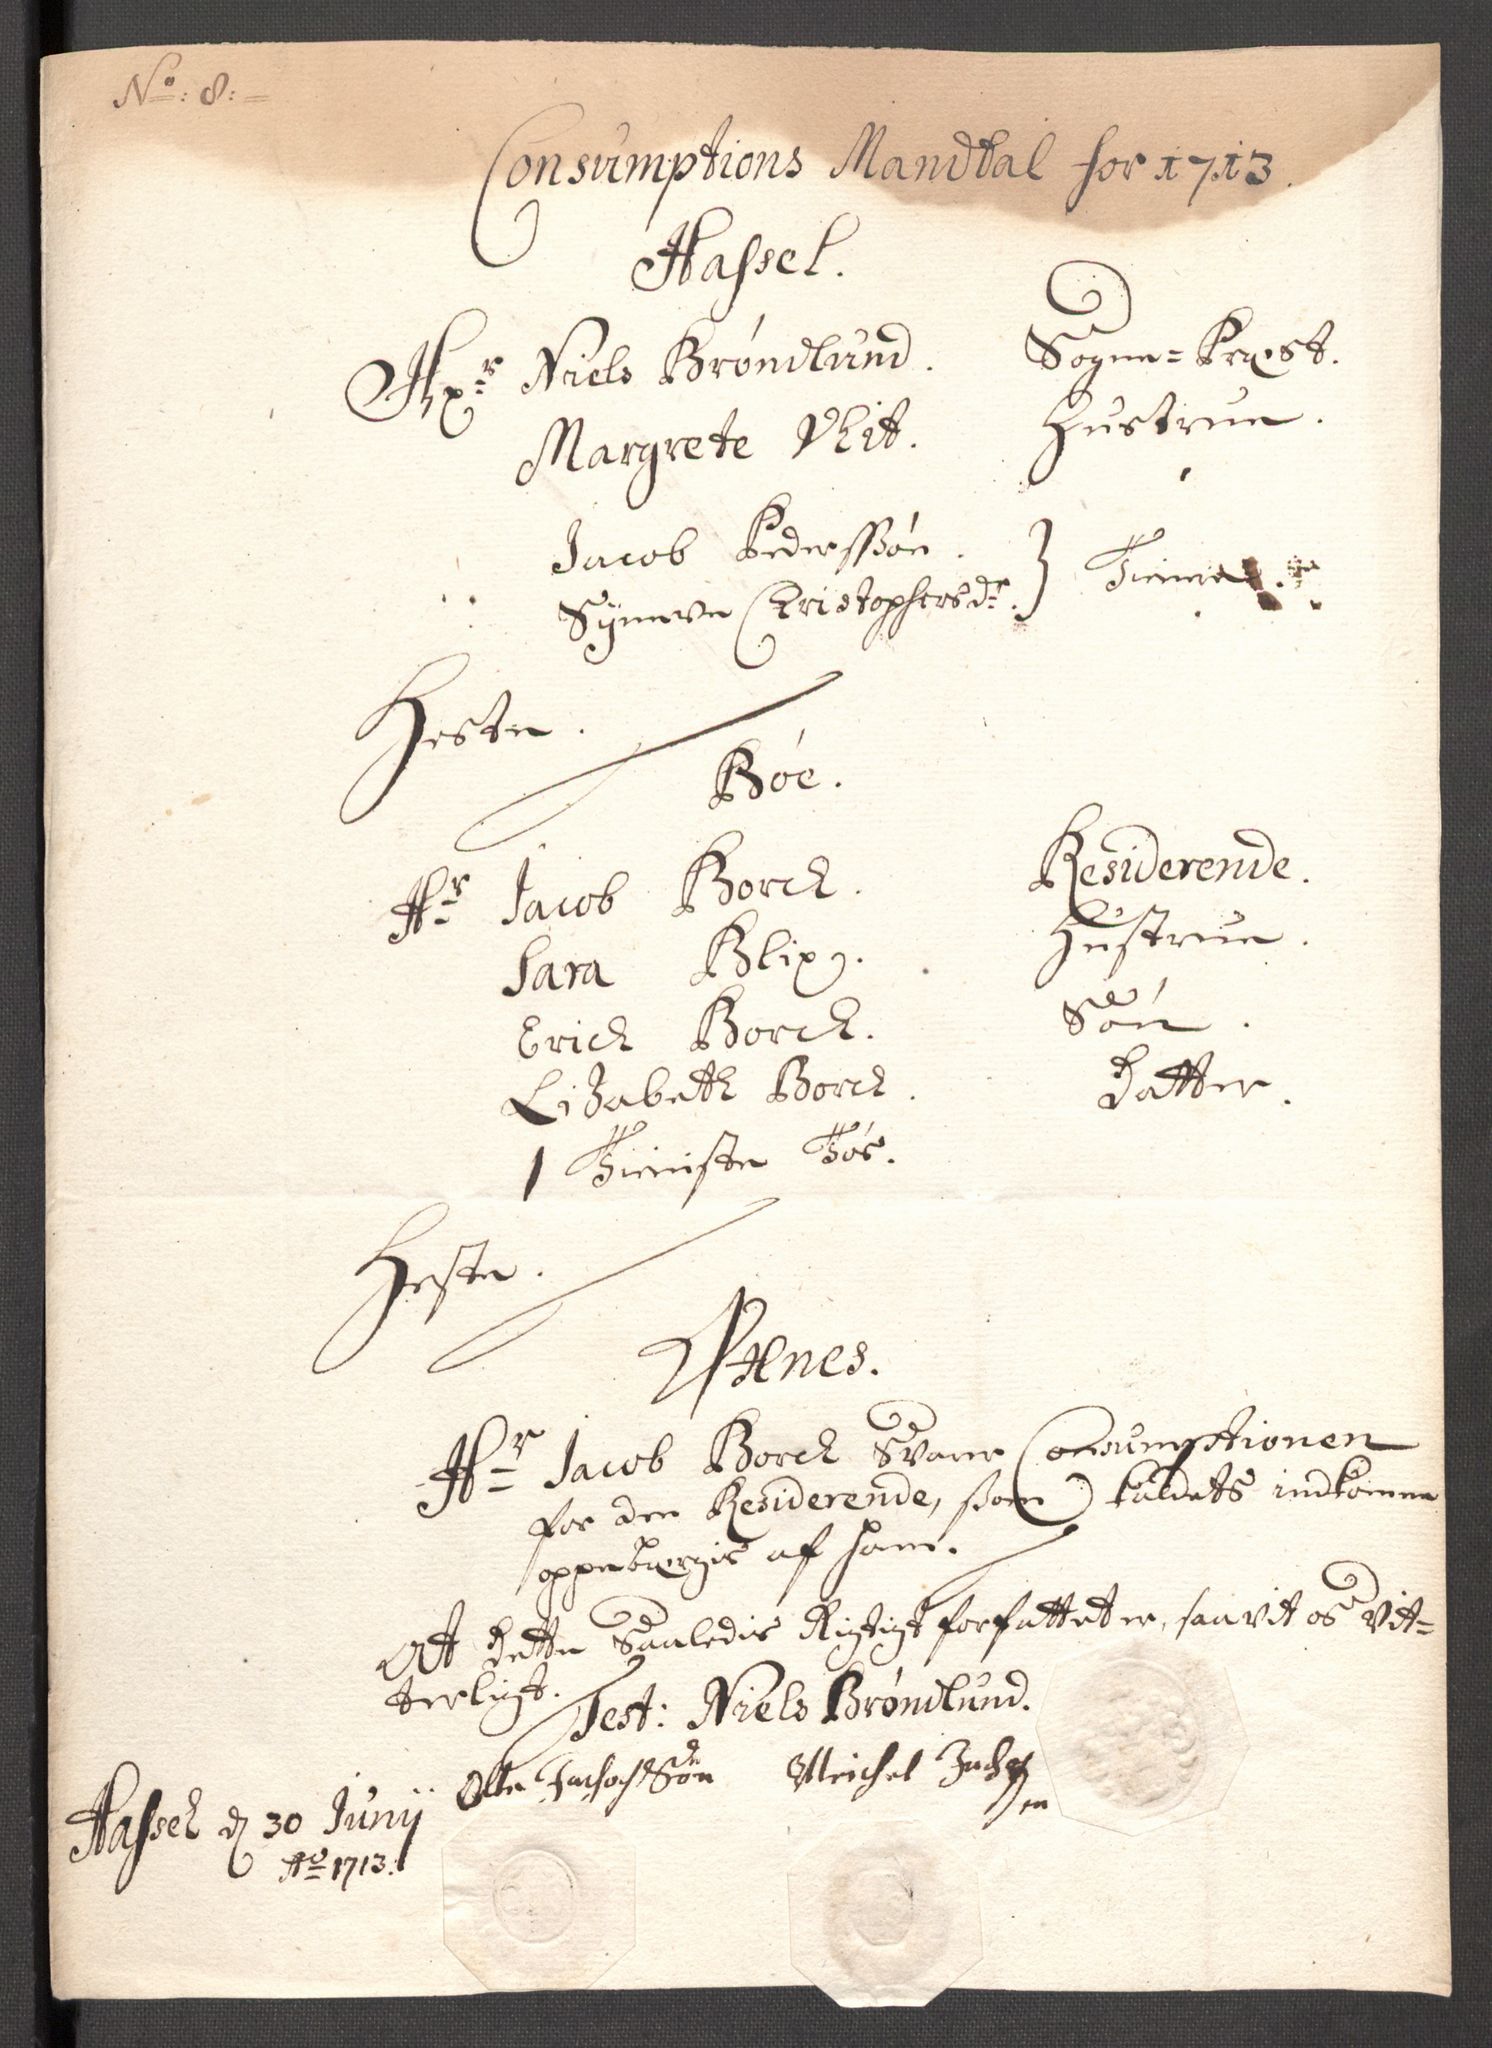 No: 8:
Consumptions Mandtal for 1713.
Hassel.
Hr Niels Brøndlund. Sogne=Præst.
Margrete Vhit. Hustrue.
Jacob PedersSøn.
Synneve Christophersdr. } Tienner
Heste.
Bøe.
Hr Jacob Borch. Residerende.
Sara Blix. Hustrue.
Erich Borch. Søn.
Lizabeth Borch. Datter.
1 Tieniste Tøs.
Heste.
Øxnes.
Hr Jacob Borch Svarer Consumptionen
for den Residerende, som Kaldets indkomme
oppebærgis af ham.
At dette Saaledis Rigtigt forfattet er, saavit os Vit=
terligt.
Test: Niels Brøndlund.
Olle Søn Meichel
Hassel d 30 Junij
Ao 1713.